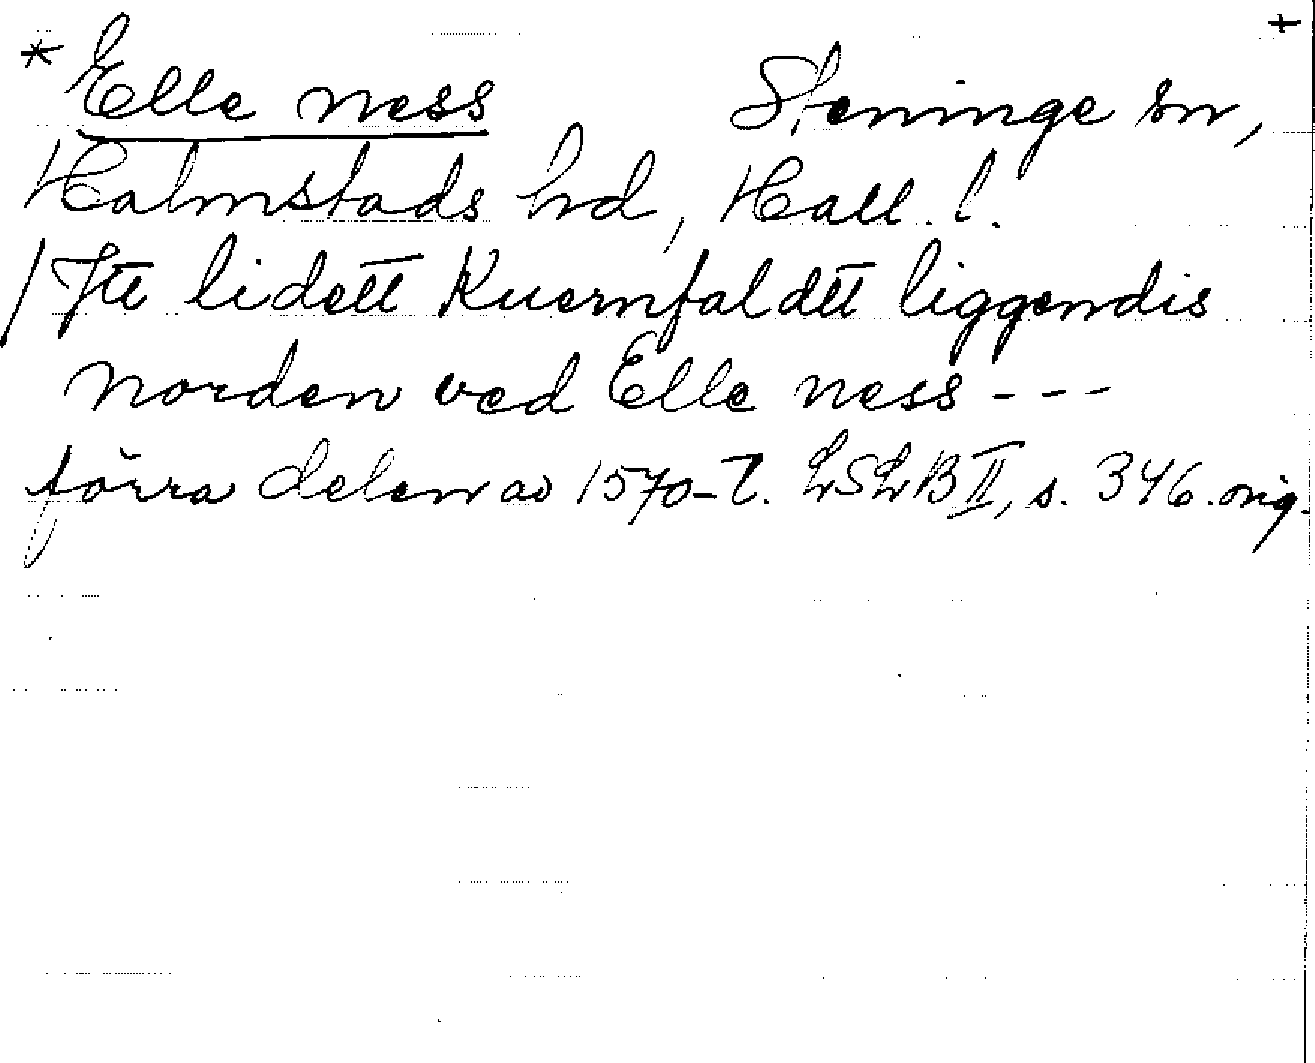 * Elle ness Steninge sn, +
Halmstads hrd, Hall. l.
/ Jtt lidett Kuernfaldtt liggendis
norden ved Elle ness ---
förra delen av 1570-t. LSLB II, s. 346. orig.